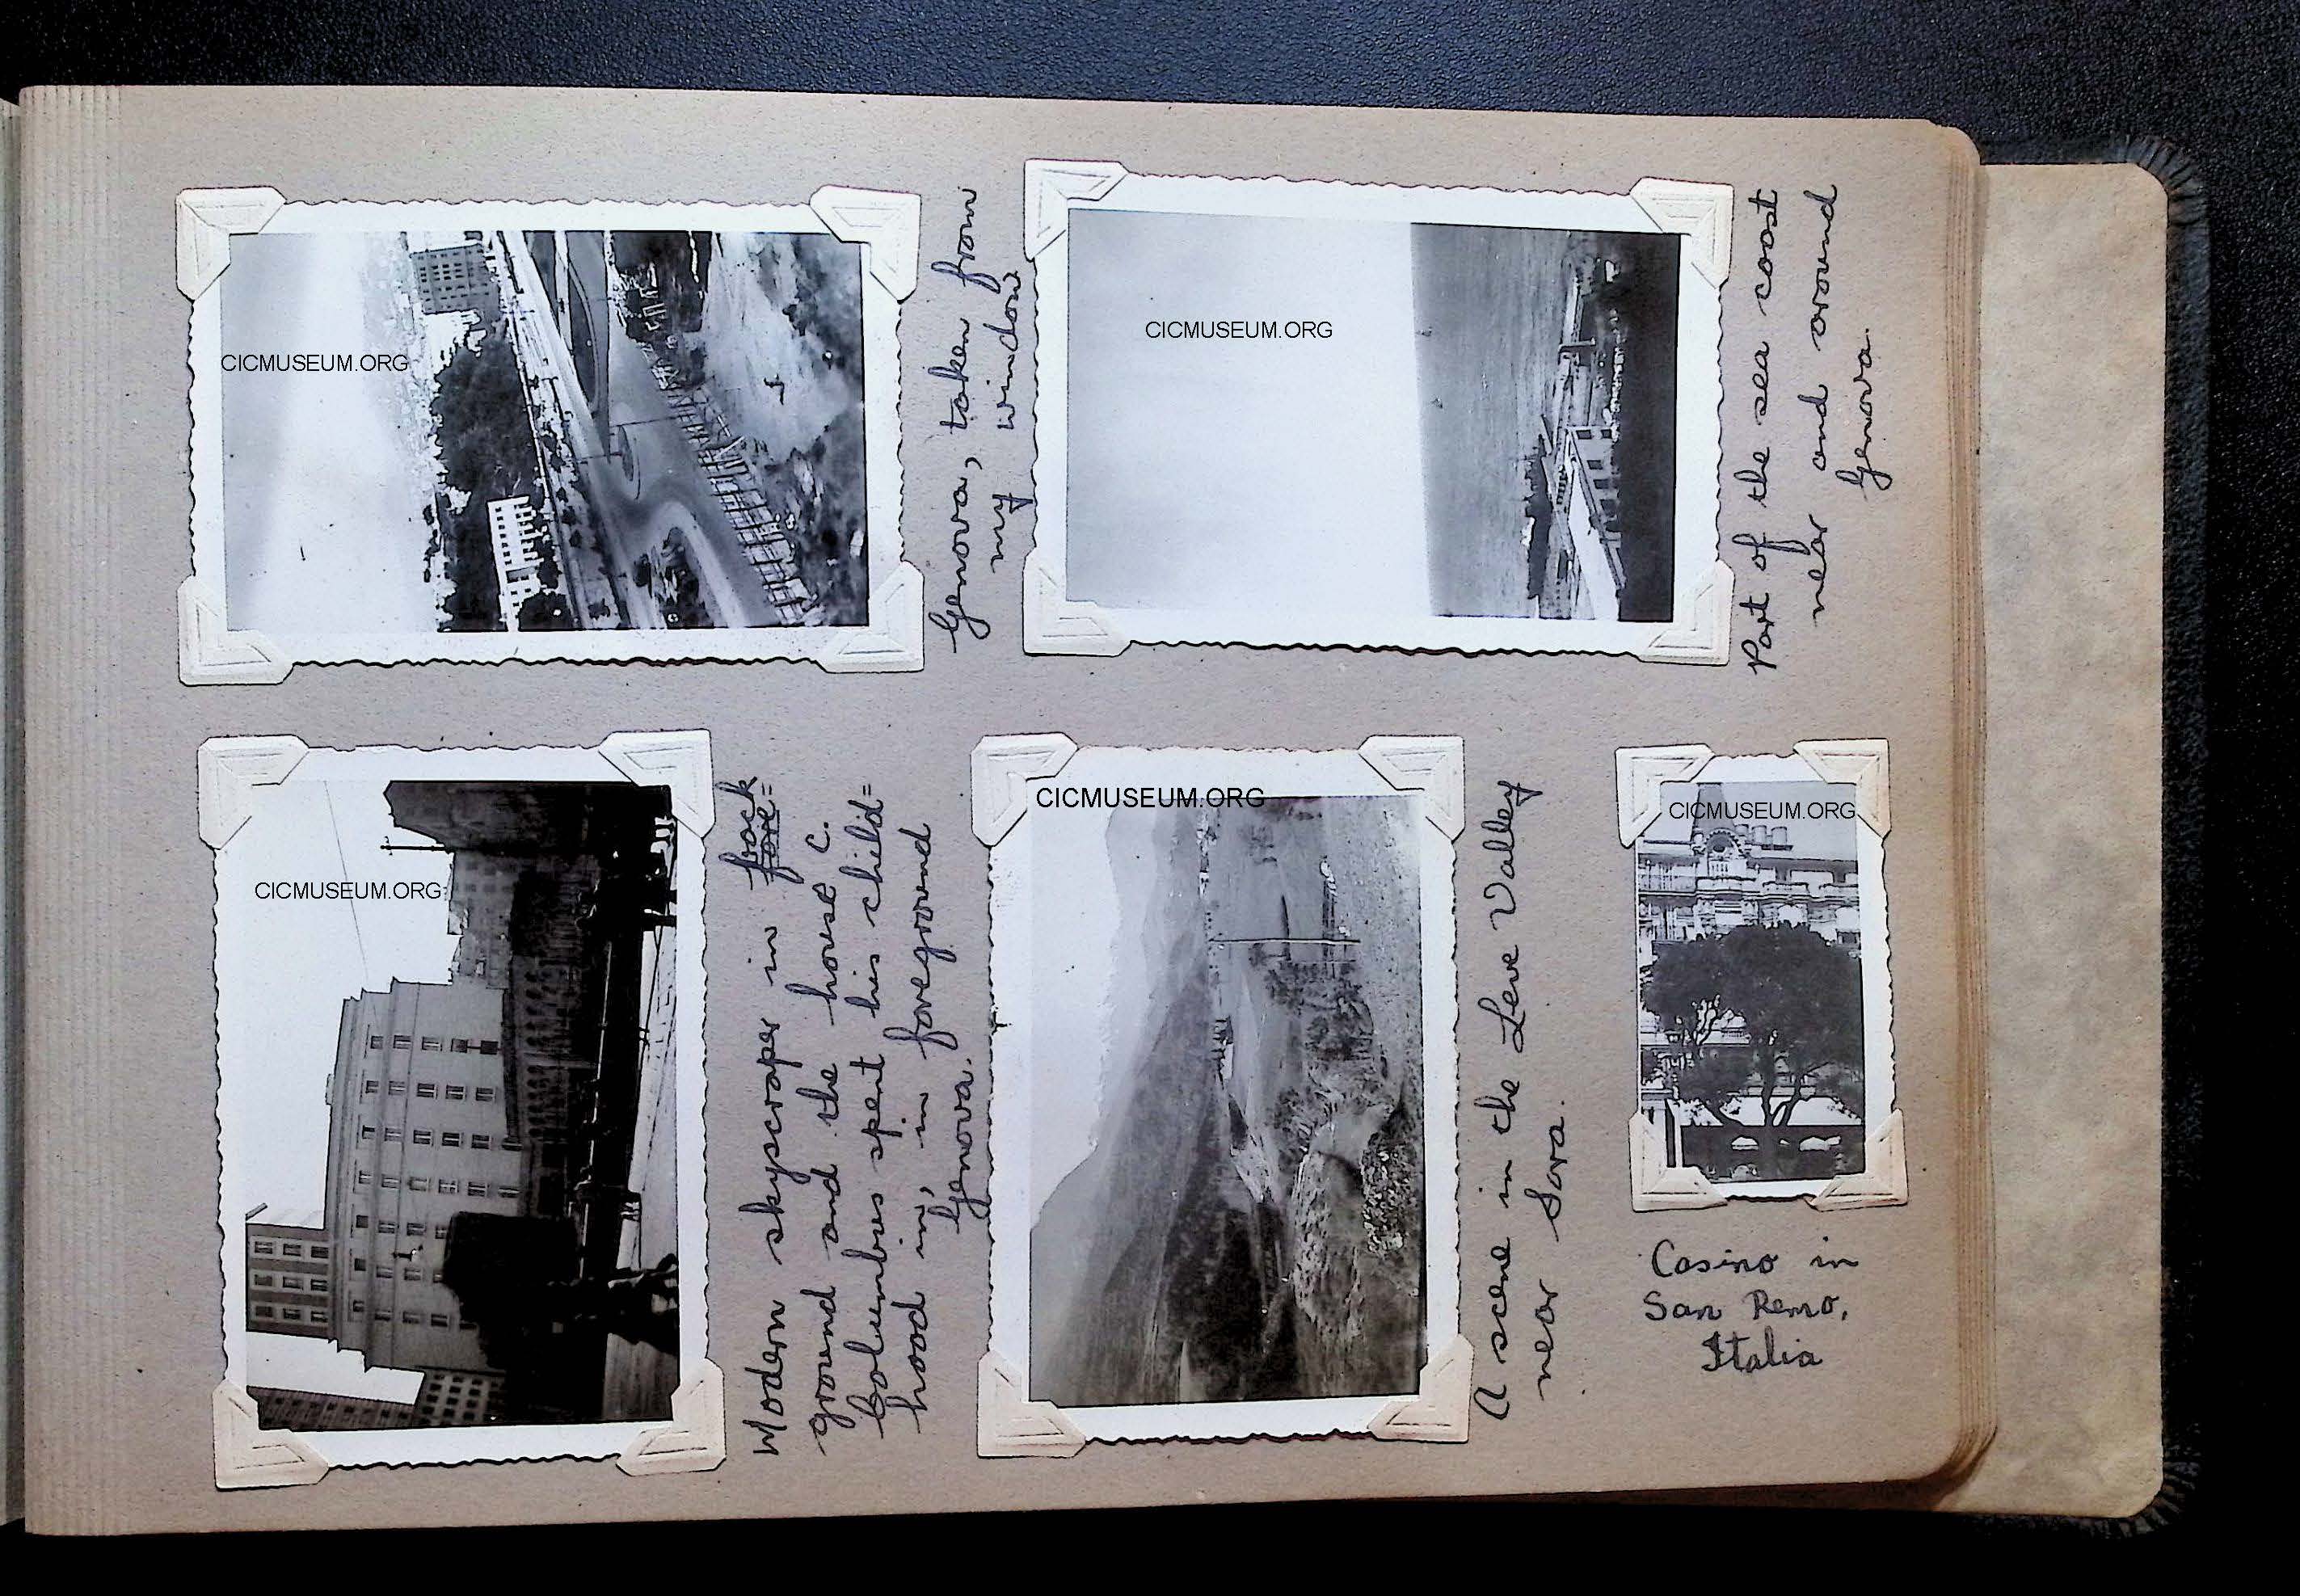 CICMUSEUM.ORG
Modern skyscraper in back
fore=
ground and the house C.
Columbus spent his child=
hood in, in foreground
Genova.
CICMUSEUM.ORG
Genova, taken from
my window
CICMUSEUM.ORG
A scene in the Leve Valley
near Sora.
CICMUSEUM.ORG
Part of the sea coast
near and around
Genova.
CICMUSEUM.ORG
Casino in
San Remo,
Italia